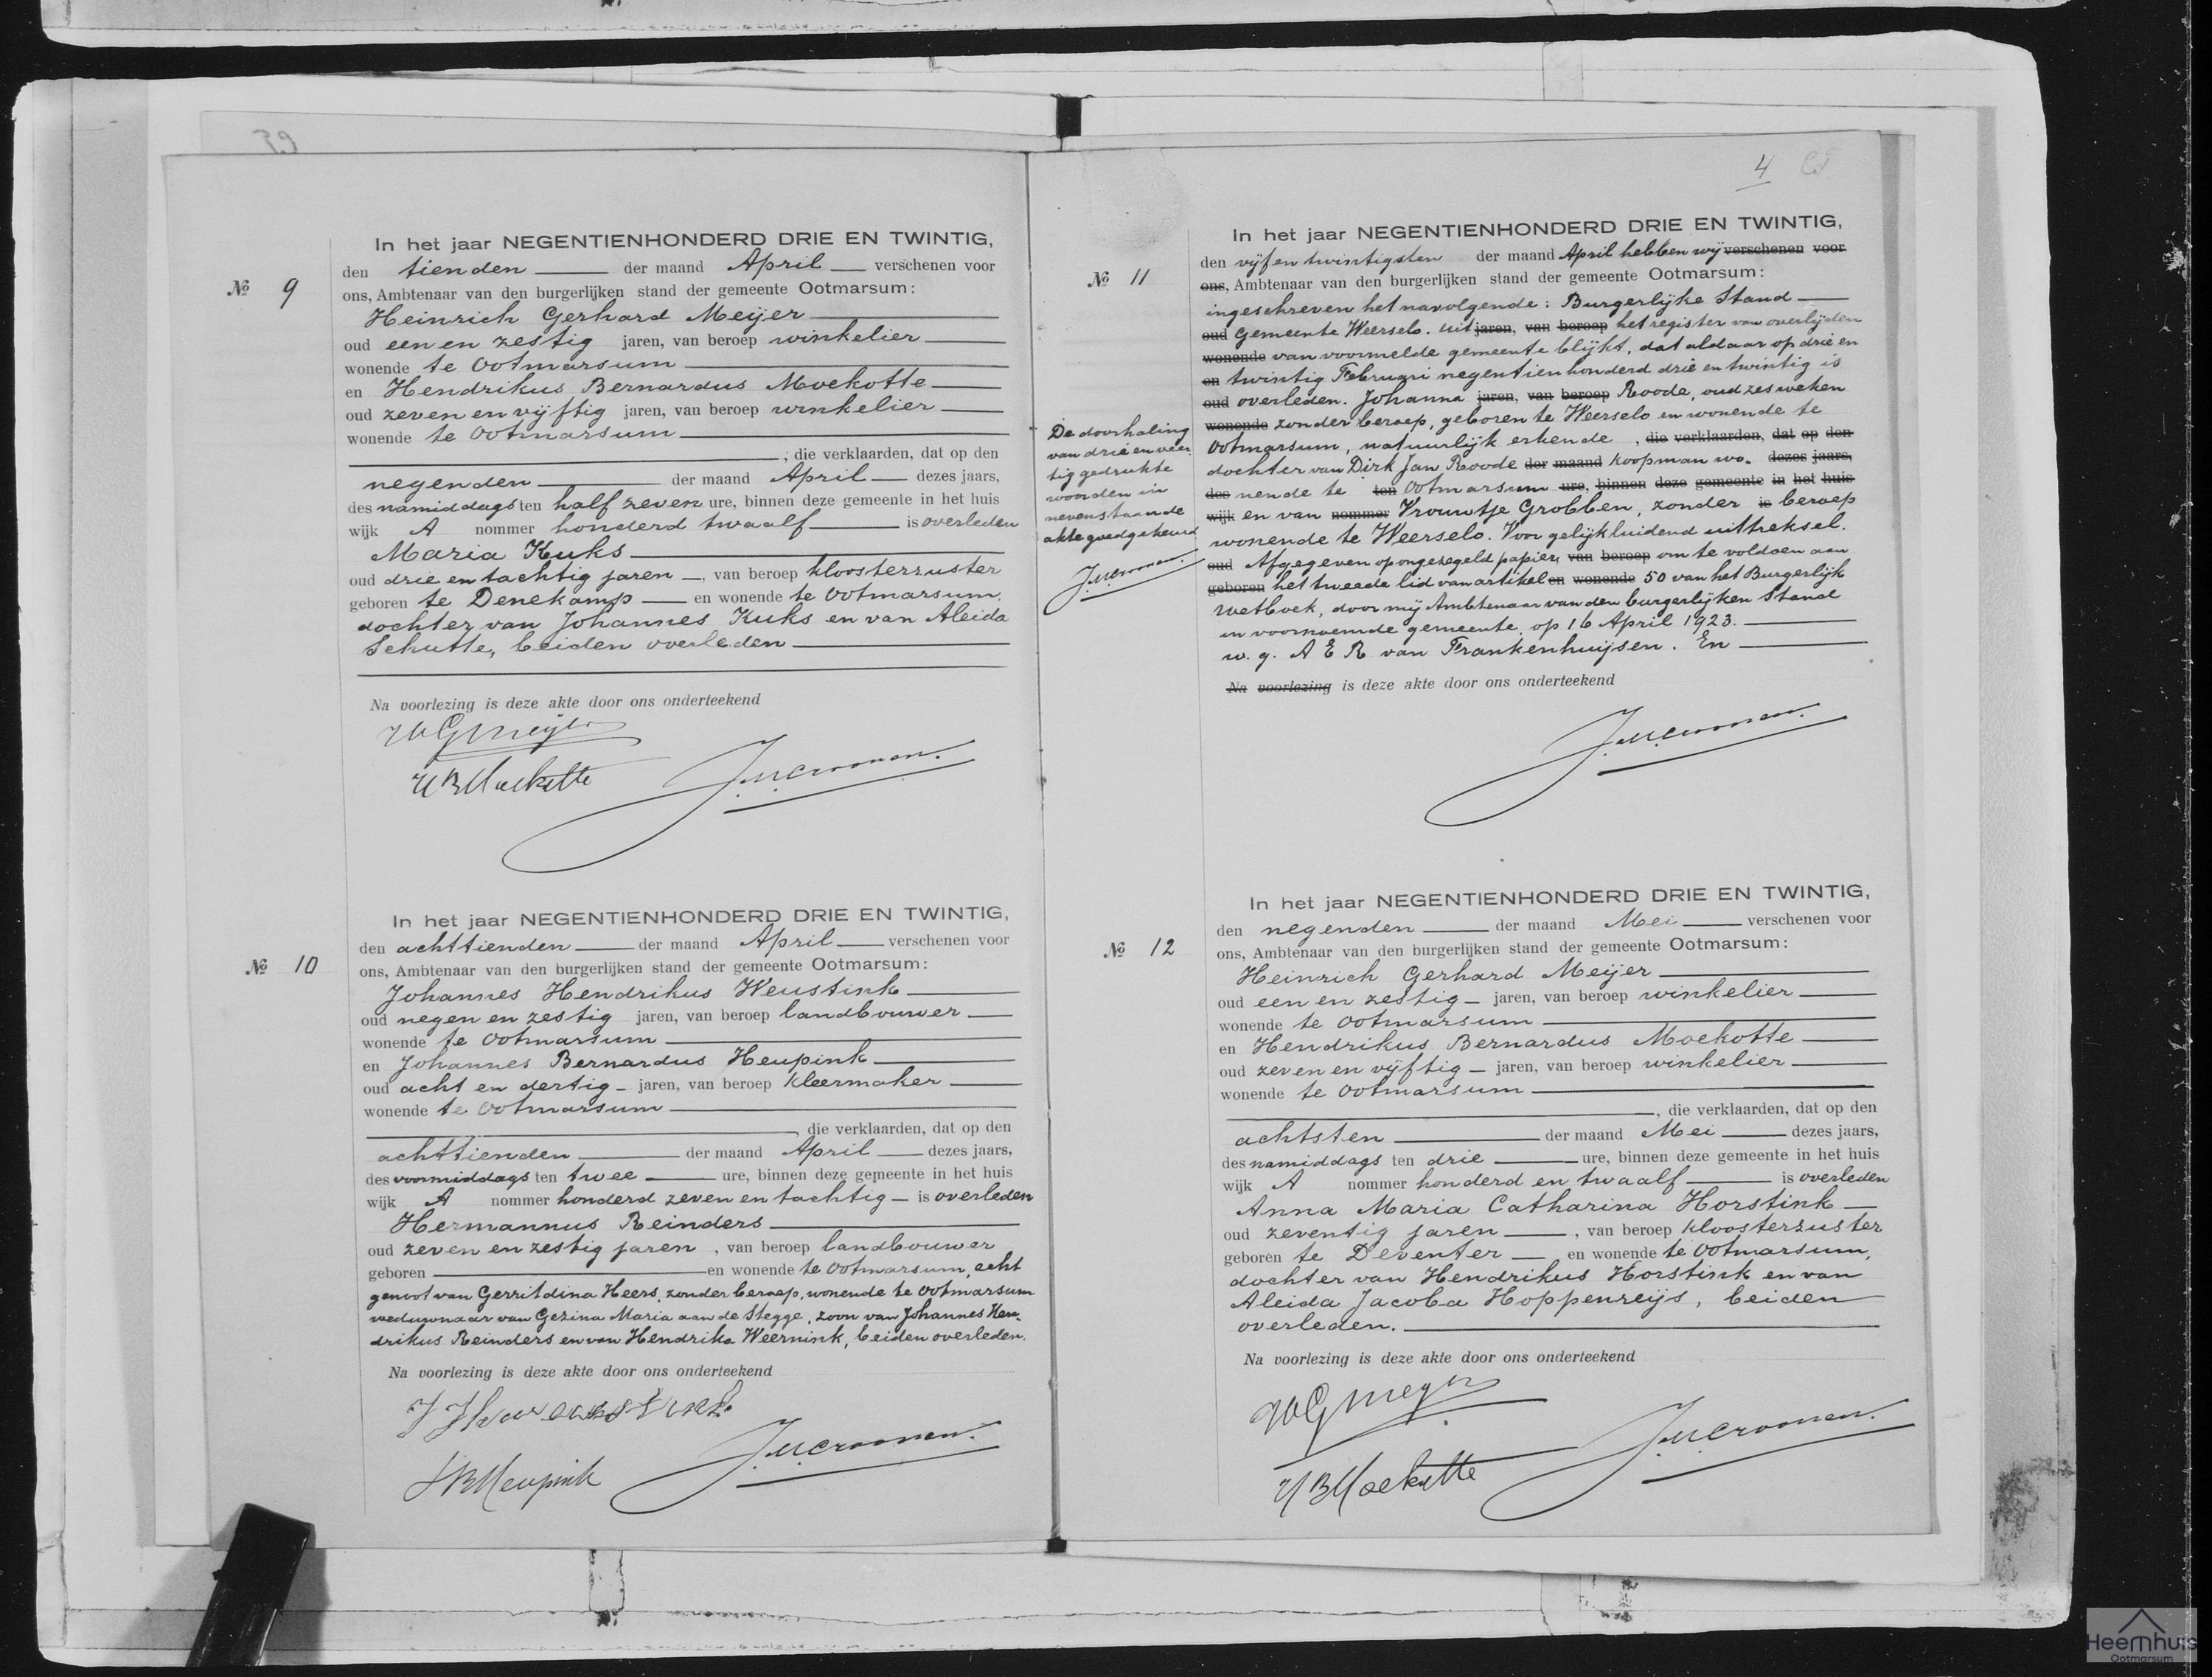 In het jaar NEGENTIENHONDERD DRIE EN TWINTIG,
den tienden der maand April verschenen voor
№ 9
ons, Ambtenaar van den burgerlijken stand der gemeente Ootmarsum:
Heinrich Gerhard Meijer
oud een en zestig jaren, van beroep winkelier
wonende te Ootmarsum
en Hendrikus Bernardus Moekotte
oud zeven en vijftig jaren, van beroep winkelier
wonende te Ootmarsum
, die verklaarden, dat op den
negenden der maand April dezes jaars,
des namiddags ten half zeven ure, binnen deze gemeente in het huis
wijk A nommer honderd twaalf is overleden
Maria Kuks
oud drie en tachtig jaren, van beroep kloosterzuster
geboren te Denekamp en wonende te Ootmarsum,
dochter van Johannes Kuks en van Aleida
Schutte, beiden overleden
Na voorlezing is deze akte door ons onderteekend
HG Meijer
HB Moekotte
In het jaar NEGENTIENHONDERD DRIE EN TWINTIG,
den achttienden der maand April verschenen voor
№ 10
ons, Ambtenaar van den burgerlijken stand der gemeente Ootmarsum:
Johannes Hendrikus Weustink
oud negen en zestig jaren, van beroep landbouwer
wonende te Ootmarsum
en Johannes Bernardus Heupink
oud acht en dertig jaren, van beroep kleermaker
wonende te Ootmarsum
, die verklaarden, dat op den
achttienden der maand April dezes jaars,
des voormiddags ten twee ure, binnen deze gemeente in het huis
wijk A nommer honderd zeven en tachtig is overleden
Hermannus Reinders
oud zeven en zestig jaren, van beroep landbouwer
geboren en wonende te Ootmarsum, echt
genoot van Gerritdina Heers, zonder beroep, wonende te Ootmarsum
weduwnaar van Gezina Maria aan de Stegge, zoon van Johannes Hen-
drikus Reinders en van Hendrika Weernink, beiden overleden.
Na voorlezing is deze akte door ons onderteekend
JB Heupink
4
In het jaar NEGENTIENHONDERD DRIE EN TWINTIG,
den vijfen twintigsten der maand April hebben wij verschenen voor
№ 11
ons, Ambtenaar van den burgerlijken stand der gemeente Ootmarsum:
ingeschreven het navolgende: Burgerlijke Stand
oud Gemeente Weerselo. Uit jaren, van beroep het register van overlijden
wonende van voormelde gemeente blijkt, dat aldaar op drie en
en twintig Februari negentienhonderd drie en twintig is
oud overleden. Johanna jaren, van beroep Roode, oud zes weken
wonende zonder beroep, geboren te Weerselo en wonende te
Ootmarsum, natuurlijk erkende, die verklaarden, dat op den
dochter van Dirk Jan Roode der maand koopman wo- dezes jaars,
des nende te ten Ootmarsum ure, binnen deze gemeente in het huis
wijk en van nommer Vrouwtje Grobben, zonder is beroep
wonende te Weerselo. Voor gelijkluidend uittreksel.
oud Afgegeven op ongezegeld papier, van beroep om te voldoen aan
geboren het tweede lid van artikel en wonende 50 van het Burgerlijk
Wetboek, door mij Ambtenaar van den burgerlijken Stand
in voornoemde gemeente, op 16 April 1923.
w. g. A E R van Frankenhuijsen. En
Na voorlezing is deze akte door ons onderteekend
De doorhaling
van drie en veer
tig gedrukte
woorden in
nevenstaande
akte goedgekeurd
In het jaar NEGENTIENHONDERD DRIE EN TWINTIG,
den negenden der maand Mei verschenen voor
№ 12
ons, Ambtenaar van den burgerlijken stand der gemeente Ootmarsum:
Heinrich Gerhard Meijer
oud een en zestig jaren, van beroep winkelier
wonende te Ootmarsum
en Hendrikus Bernardus Moekotte
oud zeven en vijftig jaren, van beroep winkelier
wonende te Ootmarsum
, die verklaarden, dat op den
achtsten der maand Mei dezes jaars,
des namiddags ten drie ure, binnen deze gemeente in het huis
wijk A nommer honderd en twaalf is overleden
Anna Maria Catharina Horstink
oud zeventig jaren, van beroep kloosterzuster
geboren te Deventer en wonende te Ootmarsum,
dochter van Hendrikus Horstink en van
Aleida Jacoba Hoppenreijs, beiden
overleden.
Na voorlezing is deze akte door ons onderteekend
HG Meijer
HB Moekotte
Heemhuis
Ootmarsum